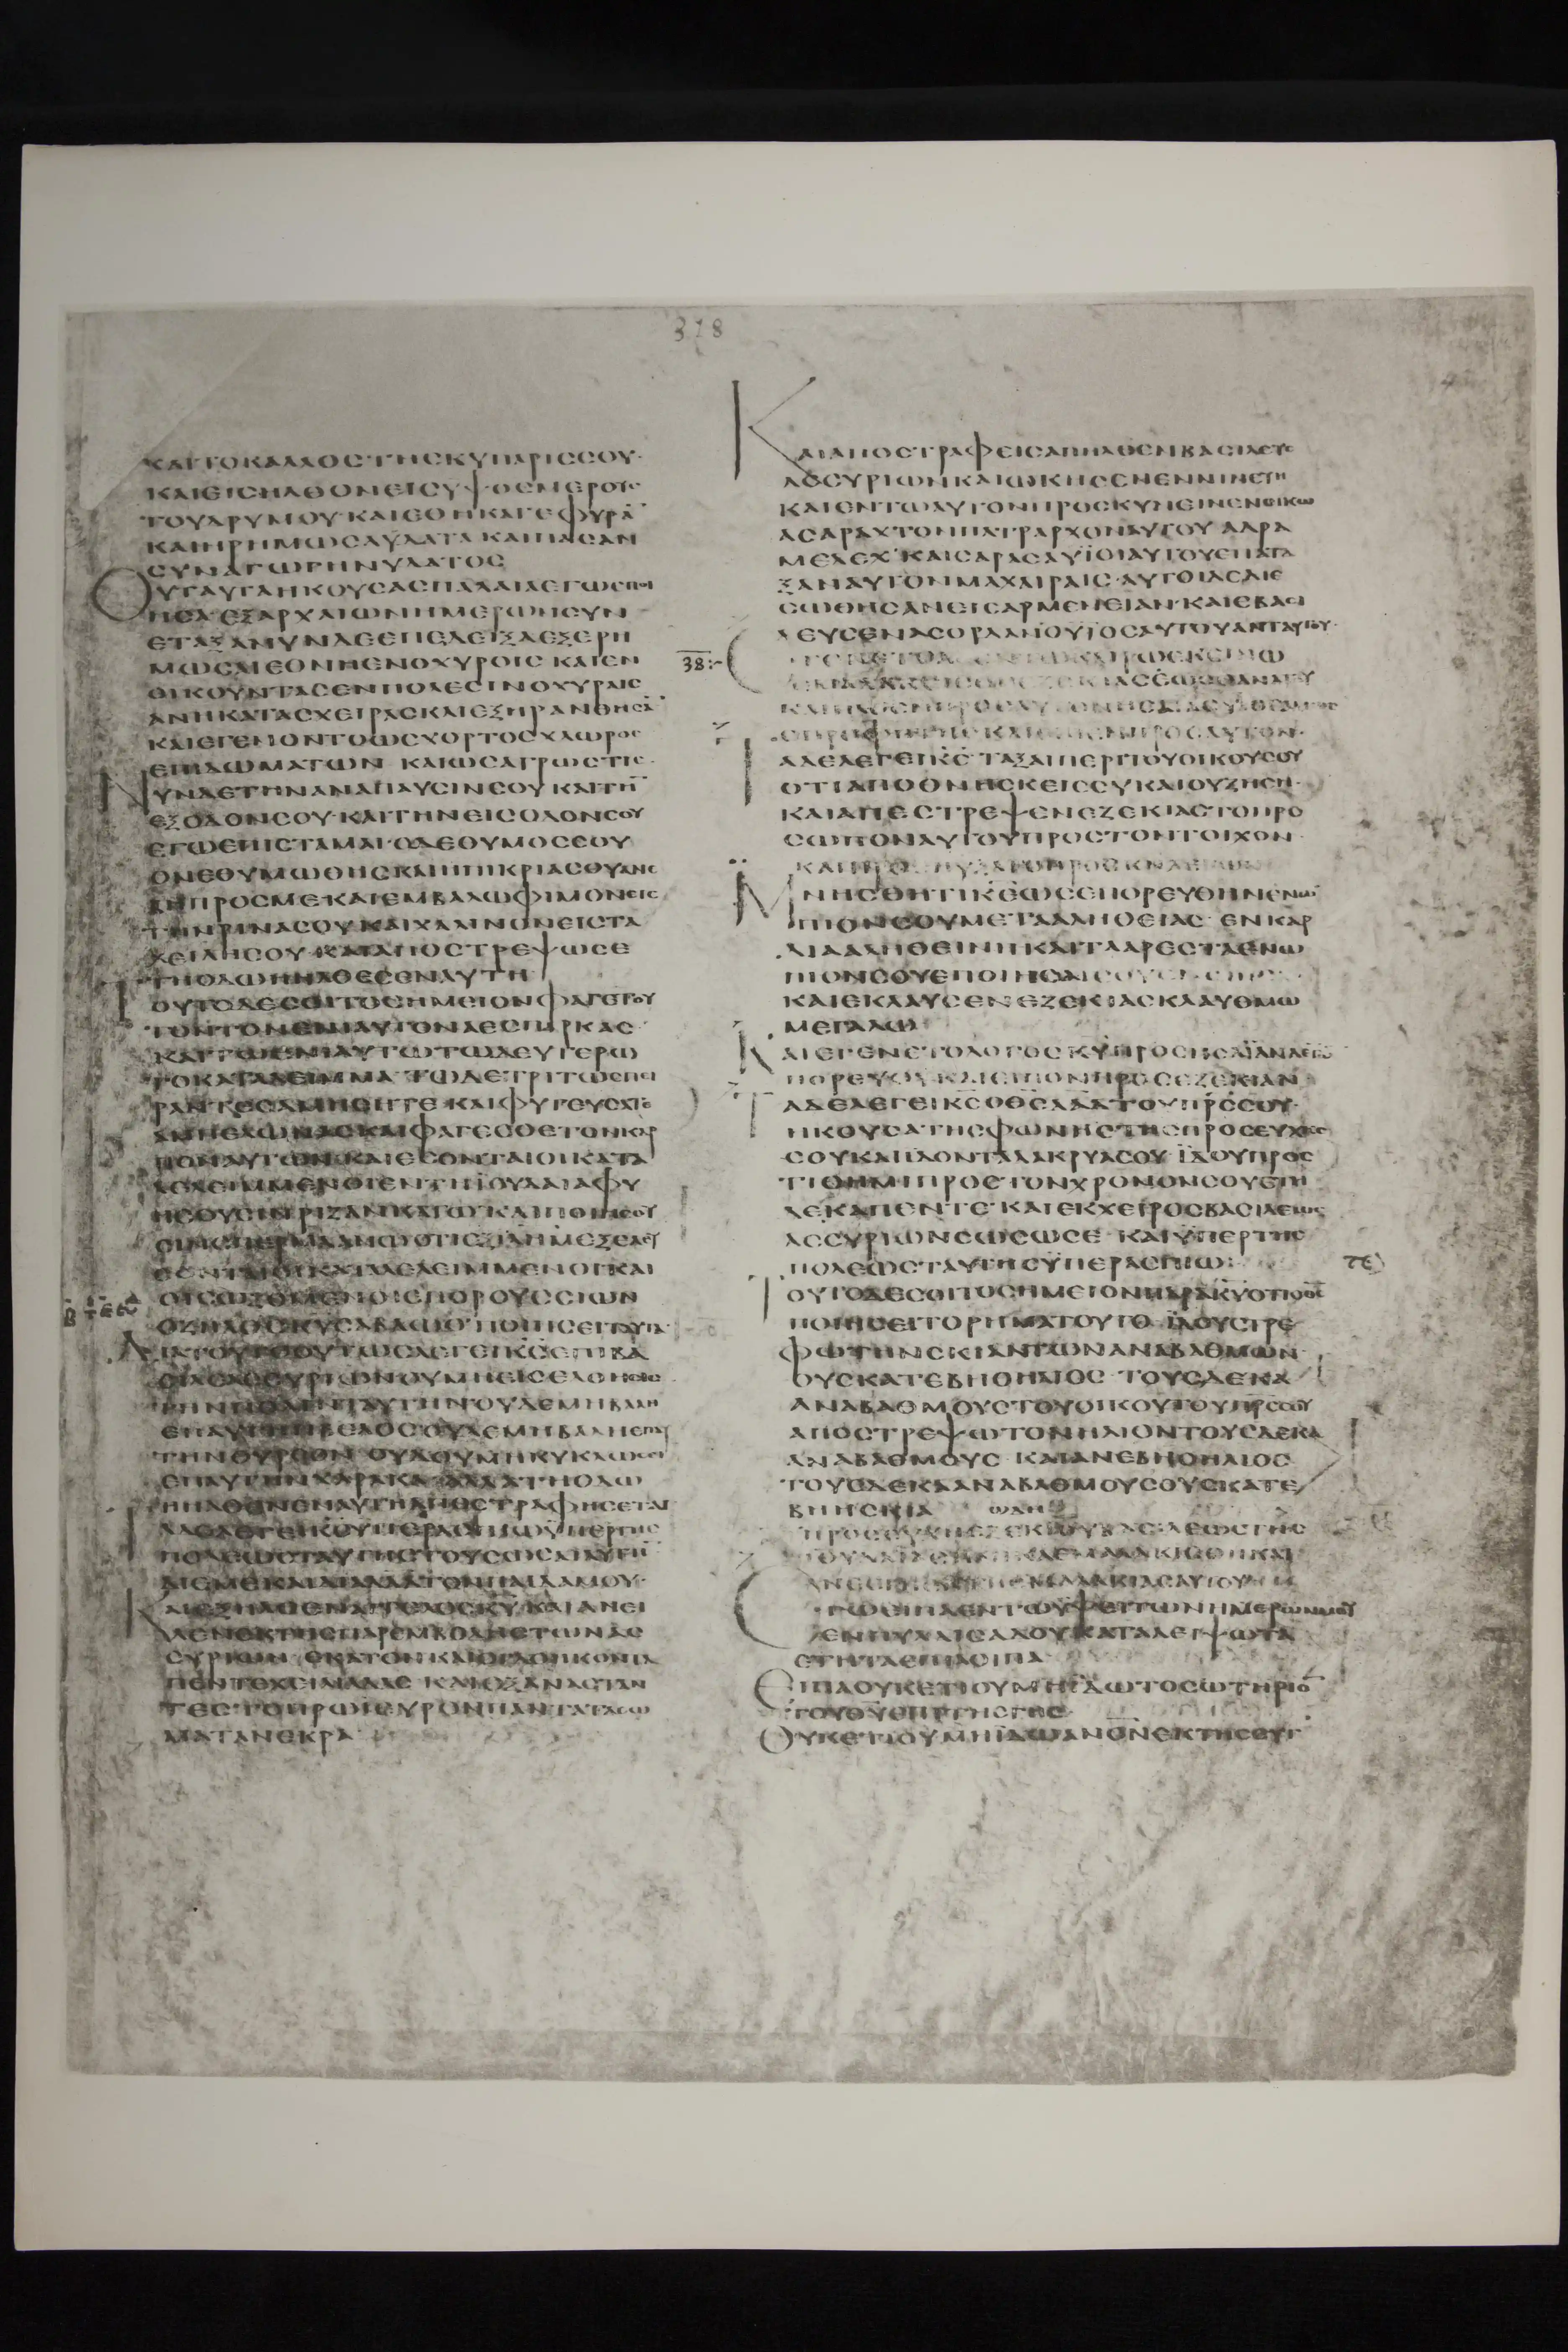 318
ΚΑΙΤΟΚΑΛΛΟΣΤΗΣΚΥΠΑΡΙΣΣΟΥ·
ΚΑΙΕΙΣΗΛΘΟΝΕΙΣΥΨΟΣΜΕΡΟΥΣ
ΤΟΥΔΡΥΜΟΥ·ΚΑΙΕΘΗΚΑΓΕΦΥΡΑ̅
ΚΑΙΗΡΗΜΩΣΑΥΔΑΤΑΚΑΙΠΑΣΑΝ
ΣΥΝΑΓΩΓΗΝΥΔΑΤΟΣ
ΟΥΤΑΥΤΑΗΚΟΥΣΑΣΠΑΛΑΙΑΕΓΩΕΠΟΙ
ΗΣΑ·ΕΞΑΡΧΑΙΩΝΗΜΕΡΩΝΣΥΝ
ΕΤΑΞΑΝΥΝΔΕΕΠΕΔΕΙΞΑΕΞΕΡΗ
ΜΩΣΑΙΕΘΝΗΕΝΟΧΥΡΟΙΣ ΚΑΙΕΝ
ΟΙΚΟΥΝΤΑΣΕΝΠΟΛΕΣΙΝΟΧΥΡΑΙΣ
ΑΝΗΚΑΤΑΣΧΕΙΡΑΣΚΑΙΕΞΗΡΑΝΘΗΣΑ̅
ΚΑΙΕΓΕΝΟΝΤΟΩΣΧΟΡΤΟΣΧΛΩΡΟΣ
ΕΠΙΔΩΜΑΤΩΝ ΚΑΙΩΣΑΓΡΩΣΤΙΣ·
ΝΥΝΔΕΤΗΝΑΝΑΠΑΥΣΙΝΣΟΥΚΑΙΤΗ̅
ΕΞΟΔΟΝΣΟΥ·ΚΑΙΤΗΝΕΙΣΟΔΟΝΣΟΥ
ΕΓΩΕΠΙΣΤΑΜΑΙ·ΟΔΕΘΥΜΟΣΣΟΥ
ΟΝΕΘΥΜΩΘΗΣΚΑΙΗΠΙΚΡΙΑΣΟΥΑΝΕ
ΒΗΠΡΟΣΜΕΚΑΙΕΜΒΑΛΩΦΙΜΟΝΕΙΣ
ΤΗΝΡΙΝΑΣΟΥΚΑΙΧΑΛΙΝΟΝΕΙΣΤΑ
ΧΕΙΛΗΣΟΥ·ΚΑΙΑΠΟΣΤΡΕΨΩΣΕ
ΤΗΟΔΩΗΗΛΘΕΣΕΝΑΥΤΗ
ΤΟΥΤΟΔΕΣΟΙΤΟΣΗΜΕΙΟΝΦΑΓΕΤΟΥ
ΤΟΝΤΟΝΕΝΙΑΥΤΟΝΑΕΣΠΑΡΚΑΣ·
ΚΑΙΤΩΕΝΙΑΥΤΩΤΩΔΕΥΤΕΡΩ
ΤΟΚΑΤΑΛΕΙΜΜΑ·ΤΩΔΕΤΡΙΤΩΣΠΕΙ
ΡΑΝΤΕΣΑΜΗΣΗΤΕ·ΚΑΙΦΥΤΕΥΣΑΤΕ
ΑΜΠΕΛΩΝΑΣΚΑΙΦΑΓΕΣΘΕΤΟΝΚΑΡ
ΠΟΝΑΥΤΩΝΚΑΙΕΣΟΝΤΑΙΟΙΚΑΤΑ
ΛΕΛΕΙΜΜΕΝΟΙΕΝΤΗΪΟΥΔΑΙΑΦΥ
ΟΙΣΩΖΟΜΕΝΟΙΕΞΟΡΟΥΣΣΙΩΝ
ΟΖΗΛΟΣΚ̅Υ̅ΣΑΒΑΩΘΠΟΙΗΣΕΙΤΑΥΤΑ
ΔΙΑΤΟΥΤΟΟΥΤΩΣΛΕΓΕΙΚ̅Σ̅ΕΠΙΒΑ
ΣΙΛΕΑΑΣΣΥΡΙΩΝΟΥΜΗΕΙΣΕΛΘΗΕΙΣ
ΤΗΝΠΟΛΙΝΤΑΥΤΗΝΟΥΔΕΜΗΒΑΛΗ
ΕΠΑΥΤΗΝΒΕΛΟΣΟΥΔΕΜΗΒΑΛΗΕΠΑΥ
ΤΗΝΘΥΡΕΟΝ ΟΥΔΟΥΜΗΚΥΚΛΩΣΗ
ΕΠΑΥΤΗΝΧΑΡΑΚΑ·ΑΛΛΑΤΗΟΔΩ
ΗΗΛΘΕΝΕΝΑΥΤΗΑΠΟΣΤΡΑΦΗΣΕΤΑΙ
ΤΑΔΕΛΕΓΕΙΚ̅Σ̅ΥΠΕΡΑΣΠΙΩΫΠΕΡΤΗΣ
ΠΟΛΕΩΣΤΑΥΤΗΣΤΟΥΣΩΣΑΙΑΥΤΗ̅
ΔΙΕΜΕΚΑΙΔΙΑΔΑΔΤΟΝΠΑΙΔΑΜΟΥ·
ΚΑΙΕΞΗΛΘΕΝΑΓΓΕΛΟΣΚ̅Υ̅·ΚΑΙΑΝΕΙ
ΛΕΝΕΚΤΗΣΠΑΡΕΜΒΟΛΗΣΤΩΝΑΣ
ΣΥΡΙΩΝ ΕΚΑΤΟΝΚΑΙΟΓΔΟΗΚΟΝΤΑ
ΠΕΝΤΕΧΕΙΛΙΑΔΑΣ ΚΑΙΕΞΑΝΑΣΤΑΝ
ΤΕΣ·ΤΟΠΡΩΪΕΥΡΟΝΠΑΝΤΑΤΑΣΩ
ΜΑΤΑΝΕΚΡΑ
ΚΑΙΑΠΟΣΤΡΑΦΕΙΣΑΠΗΛΘΕΝΒΑΣΙΛΕΥΣ
ΑΣΣΥΡΙΩΝΚΑΙΩΚΗΣΕΝΕΝΝΙΝΕΥΗ
ΚΑΙΕΝΤΩΑΥΤΟΝΠΡΟΣΚΥΝΕΙΝΕΝΟΙΚΩ
ΑΣΑΡΑΧΤΟΝΠΑΤΡΑΡΧΟΝΑΥΤΟΥ ΑΔΡΑ
ΜΕΛΕΧ·ΚΑΙΣΑΡΑΣΑΥΪΟΙΑΥΤΟΥΕΠΑΤΑ
ΞΑΝΑΥΤΟΝΜΑΧΑΙΡΑΙΣ·ΑΥΤΟΙΔΕΔΙΕ
ΣΩΘΗΣΑΝΕΙΣΑΡΜΕΝΕΙΑΝ·ΚΑΙΕΒΑΣΙ
ΛΕΥΣΕΝΑΣΟΡΔΑΝΟΥΪΟΣΑΥΤΟΥΑΝΤΑΥΤΟΥ·
38:-
ΚΑΙΗΛΘΕΝΠΡΟΣΑΥΤΟΝΗΣΑΙΑΣΥΪΟΣΑΜΩΣ
ΟΠΡΟΦΗΤΗΣ ΚΑΙΕΙΠΕΝΠΡΟΣΑΥΤΟΝ·
ΤΑΔΕΛΕΓΕΙΚ̅Σ̅·ΤΑΞΑΙΠΕΡΙΤΟΥΟΙΚΟΥΣΟΥ
ΟΤΙΑΠΟΘΝΗΣΚΕΙΣΣΥΚΑΙΟΥΖΗΣΗ·
ΚΑΙΑΠΕΣΤΡΕΨΕΝΕΖΕΚΙΑΣΤΟΠΡΟ
ΣΩΠΟΝΑΥΤΟΥΠΡΟΣΤΟΝΤΟΙΧΟΝ·
ΜΝΗΣΘΗΤΙΚ̅Ε̅ΩΣΕΠΟΡΕΥΘΗΝΕΝΩ
ΠΙΟΝΣΟΥΜΕΤΑΑΛΗΘΕΙΑΣ ΕΝΚΑΡ
ΔΙΑΑΛΗΘΕΙΝΗΚΑΙΤΑΑΡΕΣΤΑΕΝΩ
ΠΙΟΝΣΟΥΕΠΟΙΗΣΑ
ΚΑΙΕΚΛΑΥΣΕΝΕΖΕΚΙΑΣΚΛΑΥΘΜΩ
ΜΕΓΑΛΩ
ΚΑΙΕΓΕΝΕΤΟΛΟΓΟΣΚ̅Υ̅ΠΡΟΣΗΣΑΪΑΝΛΕΓΩ̅
ΠΟΡΕΥΟΥΚΑΙΕΙΠΟΝΠΡΟΣΕΖΕΚΙΑΝ
ΤΑΔΕΛΕΓΕΙΚ̅Σ̅Ο̅Θ̅Σ̅ΔΑΔΤΟΥΠ̅Ρ̅Σ̅ΣΟΥ·
ΗΚΟΥΣΑΤΗΣΦΩΝΗΣΤΗΣΠΡΟΣΕΥΧΗΣ
ΣΟΥΚΑΙΪΔΟΝΤΑΔΑΚΡΥΑΣΟΥ ΪΔΟΥΠΡΟΣ
ΤΙΘΗΜΙΠΡΟΣΤΟΝΧΡΟΝΟΝΣΟΥΕΤΗ
ΔΕΚΑΠΕΝΤΕ·ΚΑΙΕΚΧΕΙΡΟΣΒΑΣΙΛΕΩΣ
ΑΣΣΥΡΙΩΝΣΩΣΩΣΕ ΚΑΙΫΠΕΡΤΗΣ
ΠΟΛΕΩΣΤΑΥΤΗΣΫΠΕΡΑΣΠΙΩ:
ΤΟΥΤΟΔΕΣΟΙΤΟΣΗΜΕΙΟΝΠΑΡΑΚ̅Υ̅ΟΤΙΟΘ̅Σ̅
ΠΟΙΗΣΕΙΤΟΡΗΜΑΤΟΥΤΟ·ΪΔΟΥΣΤΡΕ
ΦΩΤΗΝΣΚΙΑΝΤΩΝΑΝΑΒΑΘΜΩΝ
ΟΥΣΚΑΤΕΒΗΟΗΛΙΟΣ ΤΟΥΣΔΕΚΑ
ΑΝΑΒΑΘΜΟΥΣΤΟΥΟΙΚΟΥΤΟΥΠ̅Ρ̅Σ̅ΣΟΥ
ΑΠΟΣΤΡΕΨΩΤΟΝΗΛΙΟΝΤΟΥΣΔΕΚΑ
ΑΝΑΒΑΘΜΟΥΣ·ΚΑΙΑΝΕΒΗΟΗΛΙΟΣ
ΤΟΥΣΔΕΚΑΑΝΑΒΑΘΜΟΥΣΟΥΣΚΑΤΕ
ΒΗΗΣΚΙΑ ΩΔΗ
ΠΡΟΣΕΥΧΗΕΖΕΚΙΟΥΒΑΣΙΛΕΩΣΤΗΣ
ΕΓΩΕΙΠΑΕΝΤΩΥΨΕΙΤΩΝΗΜΕΡΩΝΜΟΥ
ΕΝΠΥΛΑΙΣΑΔΟΥΚΑΤΑΛΕΙΨΩΤΑ
ΕΤΗΤΑΕΠΙΛΟΙΠΑ
ΕΙΠΑΟΥΚΕΤΙΟΥΜΗΪΔΩΤΟΣΩΤΗΡΙΟ̅
ΤΟΥΘ̅Υ̅ΕΠΙΤΗΣΓΗΣ
ΟΥΚΕΤΙΟΥΜΗΪΔΩΑΝΟΝΕΚΤΗΣΣΥΓ